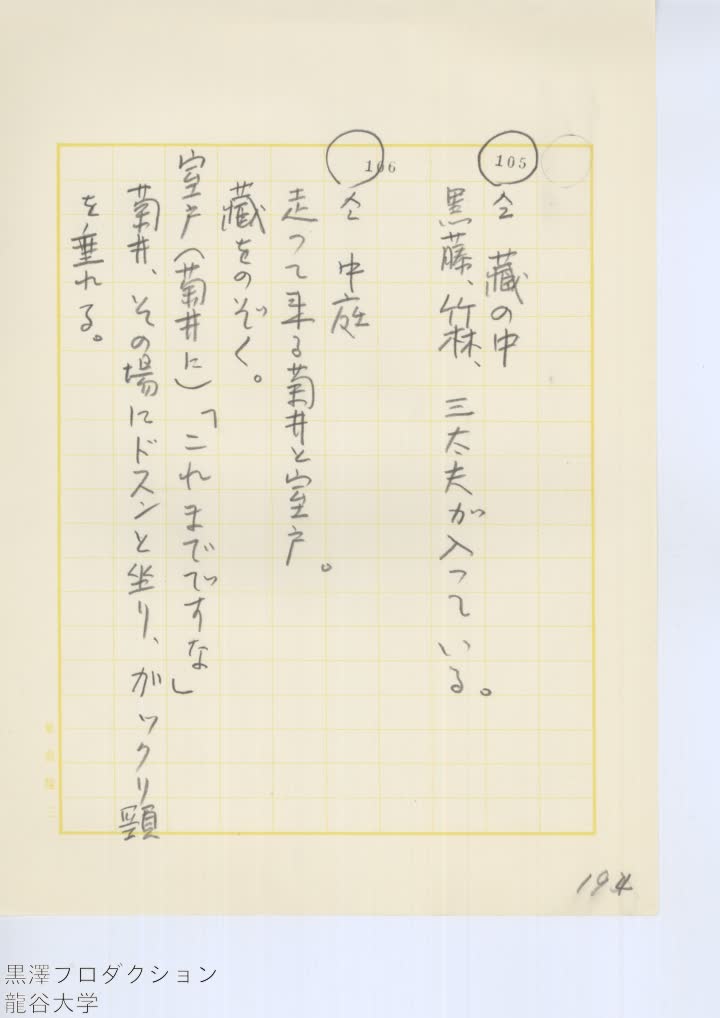 105
仝 蔵の中
黒藤、竹林、三太夫が入っている。
106
仝 中庭
走って来る菊井と室戸。
蔵をのぞく。
室戸(菊井に)「これまでですな」
菊井、その場にドスンと坐り、ガックリ頸
を垂れる。
194
黒澤プロダクション
龍谷大学